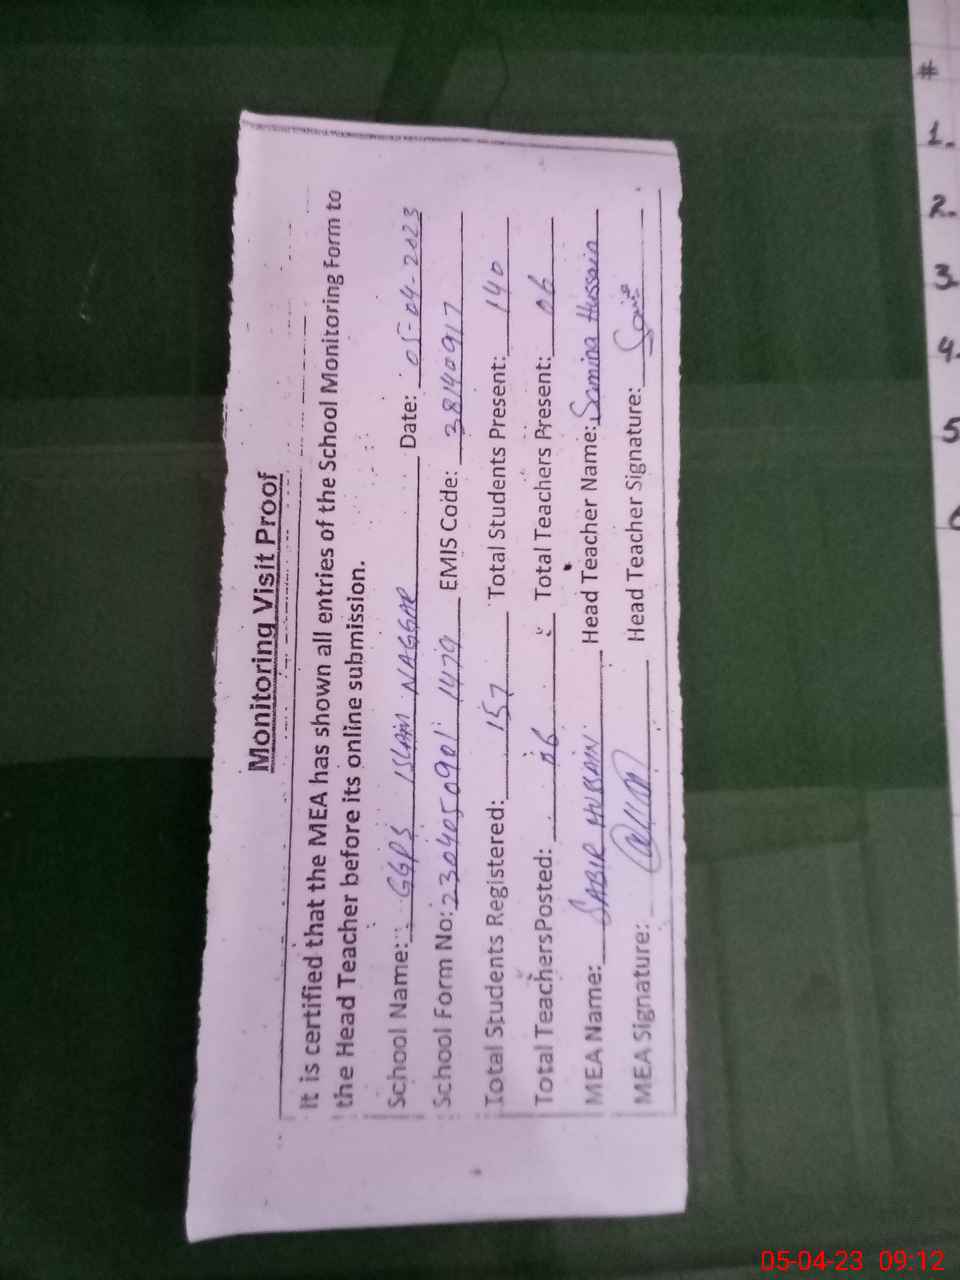 Monitoring Visit Proof
It is certified that the MEA has shown all entries of the School Monitoring Form to
the Head Teacher before its online submission.
School Name: GGPS ISLAM NAGGAR Date: 05-04-2023
School Form No: 2304050901 1479 EMIS Code: 38140917
Total Students Registered: 157 Total Students Present: 140
Total Teachers Posted: 06 Total Teachers Present: 06
MEA Name: SABIR HUSSAIN Head Teacher Name: Samina Hussain
MEA Signature: Head Teacher Signature:
#
1.
2.
3.
4.
5
05-04-23 09:12